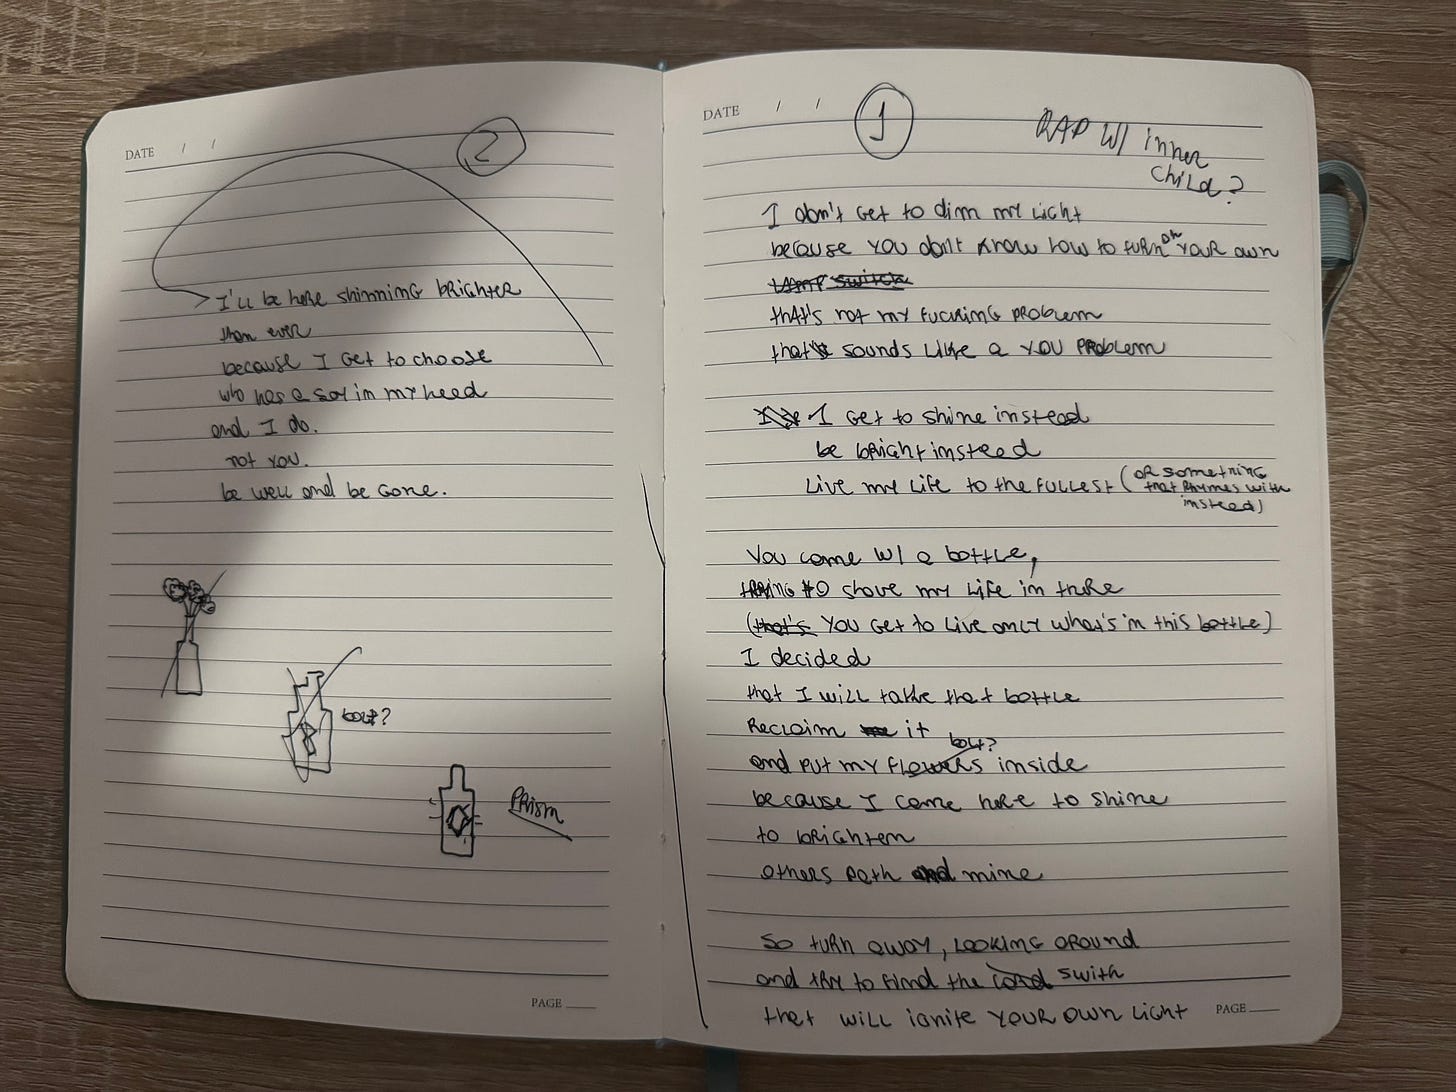 DATE / /
2
I'll be here shinning brighter
than ever
because I get to choose
who has a say in my head
and I do.
not you.
be well and be gone.
bolt?
Prism
PAGE
DATE / /
1
RAP W/ inner
child?
I don't get to dim my light
because you don't know how to turn on your own
switch
that's not my fucking problem
that sounds like a you problem
I get to shine instead
be bright instead
Live my life to the fullest (or something
that rhymes with
instead)
You come w/ a bottle,
trying to shove my life in there
(that's you get to live only what's in this bottle)
I decided
that I will take that bottle
Reclaim it
bolt?
and put my flowers inside
because I came here to shine
to brighten
others path and mine
So turn away, looking around
and try to find the swith
that will ignite your own light
PAGE